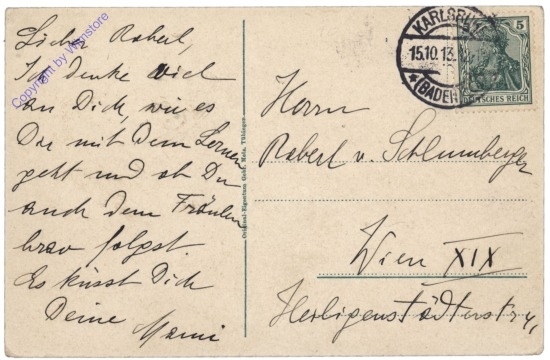 Lieber Robert,
Ich denke viel
an Dich, wie es
Dir mit dem Lernen
geht und ob Du
auch dem Fräulein
brav folgst.
Es küsst Dich
Deine Mami
Copyright by Wignstore
Original-Eigentum Gebr. Metz, Tübingen
KARLSRUHE
15.10.13.
*(BADEN)
5
DEUTSCHES REICH
Herrn
Robert v. Schlumberger
Wien XIX
Heiligenstädterstr.